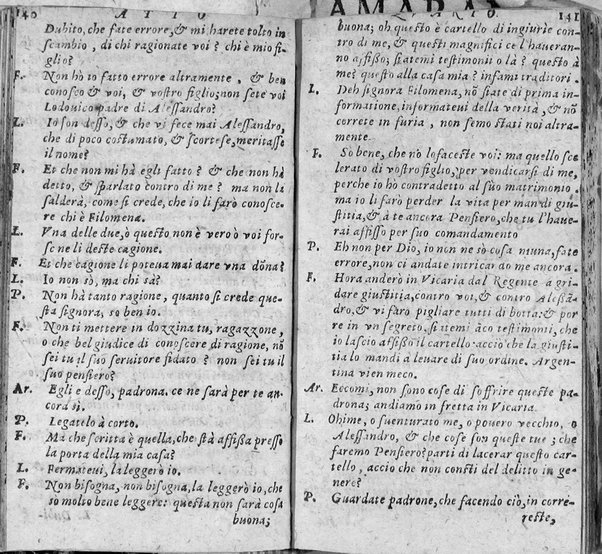 140 ATTO
Dubito, che fate errore, & mi harete tolto in
scambio, di chi ragionate voi? chi è mio fi-
glio?
F. Non hò io fatto errore altramente, & ben
conosco & voi, & vostro figlio; non sete voi
Lodouico padre di Alessandro?
L. Io son desso, & che vi fece mai Alessandro,
che di poco costumato, & scortese, meritasse
il nome?
F. Et che non mi hà egli fatto? & che non hà
detto, & sparlato contro di me? ma non la
salderà, come si crede, che io li farò conosce-
re chi è Filomena.
L. Vna delle due, ò questo non è vero ò voi for-
sc ne li deste cagione.
F. Et che cagione li poteua mai dare vna dõna?
L. Io non sò, ma chi sà?
P. Non hà tanto ragione, quanto si crede que-
sta signora; so ben io.
F. Non ti mettere in dozzina tu, ragazzone,
o che bel giudice di conoscere di ragione, nõ
sei tu il suo seruitore fidato? non sei tu il
suo pensiero?
Ar. Egli e desso, padrona. ce ne sarà per te an-
cora si.
P. Legatelo à corto.
F. Ma che scritta è quella, che stà affissa presso
la porta della mia casa?
L. Fermateui, la leggerò io.
F. Non bisogna, non bisogna, la leggerò io, che
so molto bene leggere: questa non sarà cosa
buona;
AMARA
141
buona; oh questo è cartello di ingiurie con-
tro di me, & questi magnifici ce l'haueran-
no affisso; siatemi testimonii o là? questo à
me? questo alla casa mia? infami traditori.
L. Deh signora Filomena, nõ siate di prima in-
formatione, informateui della verità, & nõ
correte in furia, non semo stati noi altra-
mente.
F. Sò bene, che nò lo faceste voi: ma quello sce
lerato di vostro figlio, per vendicarsi di me,
perche io hò contradetto al suo matrimonio.
ma io li farò perder la vita per man di giu-
stitia, & à te ancora Pensiero, che tu l'haue-
rai affisso per suo comandamento
P. Eh non per Dio, io non ne sò cosa niuna, fate
errore, non ci andate intricando me ancora.
F. Hora anderò in Vicaria dal Regente a gri-
dare giustitia, contro voi, & contro Alessã-
dro, & vi farò pigliare tutti di botta: & por
re in vn segreto, siatemi àco testimonii, che
io lascio affisso il cartello: acciò che la giusti-
tia lo mandi à leuare di suo ordine. Argen-
tina vien meco.
Ar. Eccomi, non sono cose di soffrire queste pa-
drona; andiamo in fretta in Vicaria.
L. Ohime, o suenturato me, o pouero vecchio, o
Alessandro, & che cose son queste tue; che
faremo Pensiero? parti di lacerar questo car-
tello, accio che non consti del delitto in ge-
nere?
P. Guardate padrone, che facendo ciò, in corre-
reste,